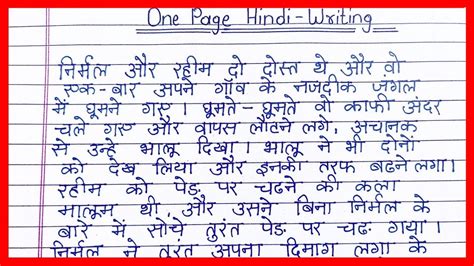 One Page Hindi-Writing
निर्मल और रहीम दो दोस्त थे और वो
एक-बार अपने गाँव के नजदीक जंगल
में घूमने गए । घूमते-घूमते वो काफी अंदर
चले गए और वापस लौटने लगे, अचानक
से उन्हे भालू दिखा । भालू ने भी दोनो
को देख लिया और इनकी तरफ बढने लगा।
रहीम को पेड़ पर चढने की कला
मालूम थी, और उसने बिना निर्मल के
बारे में सोचे तुरंत पेड़ पर चढ गया ।
निर्मल ने तुरंत अपना दिमाग लगा के